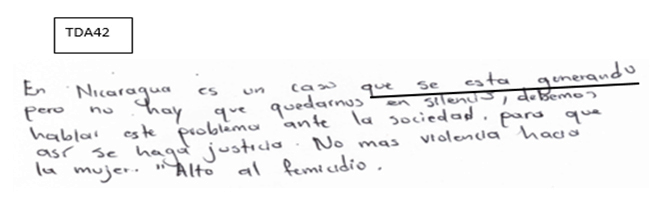 TDA42
En Nicaragua es un caso que se esta generando
pero no hay que quedarnos en silencio, debemos
hablar este problema ante la sociedad. para que
así se haga justicia. No mas violencia hacia
la mujer. "Alto al femicidio.